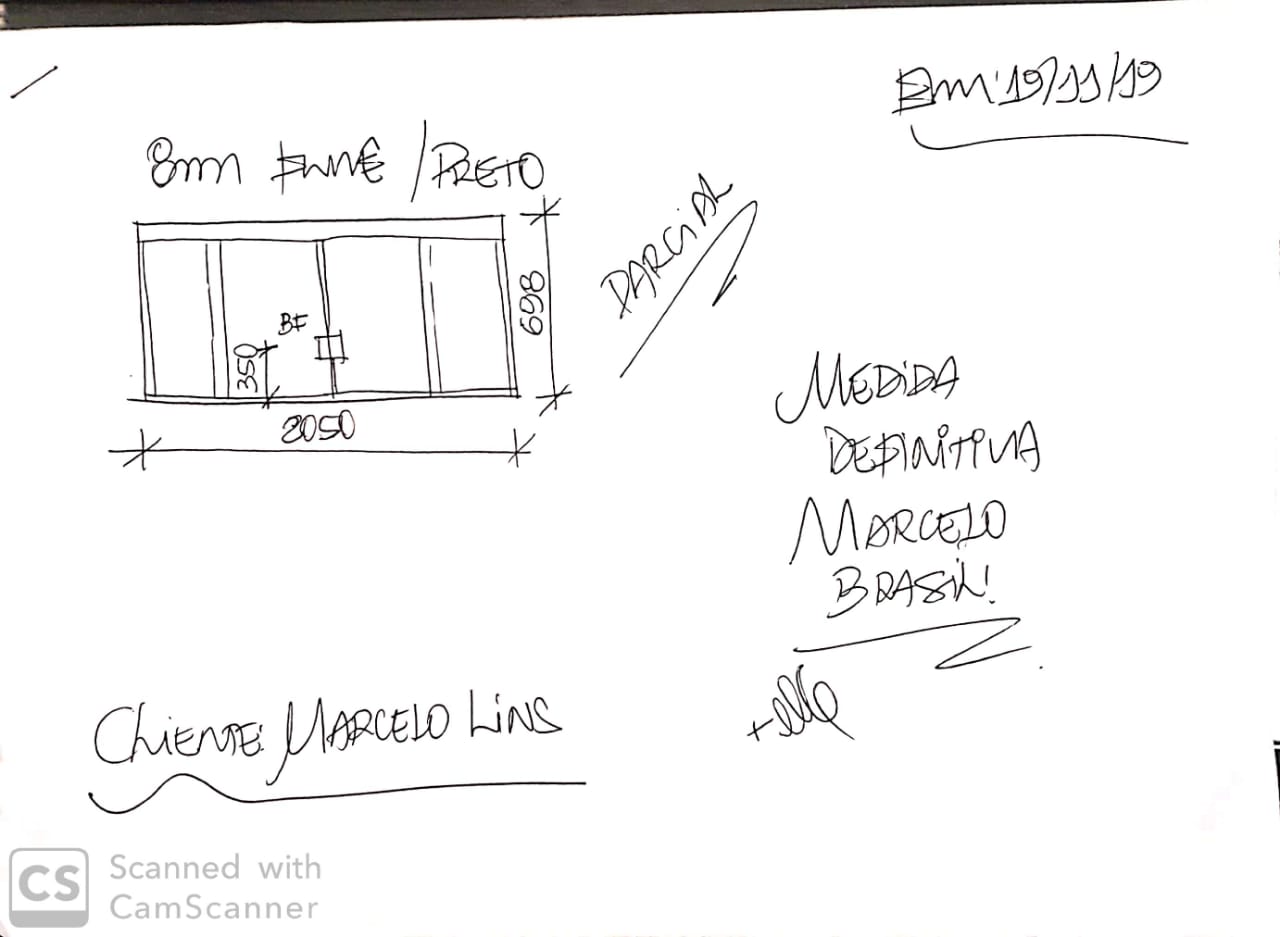 Em: 19/11/19
8mm FUMÊ / PRETO
PARCIAL
698
BF
350
2050
MEDIDA
DEFINITIVA
MARCELO
BRASIL!
CLIENTE: MARCELO LINS
CS
Scanned with
CamScanner